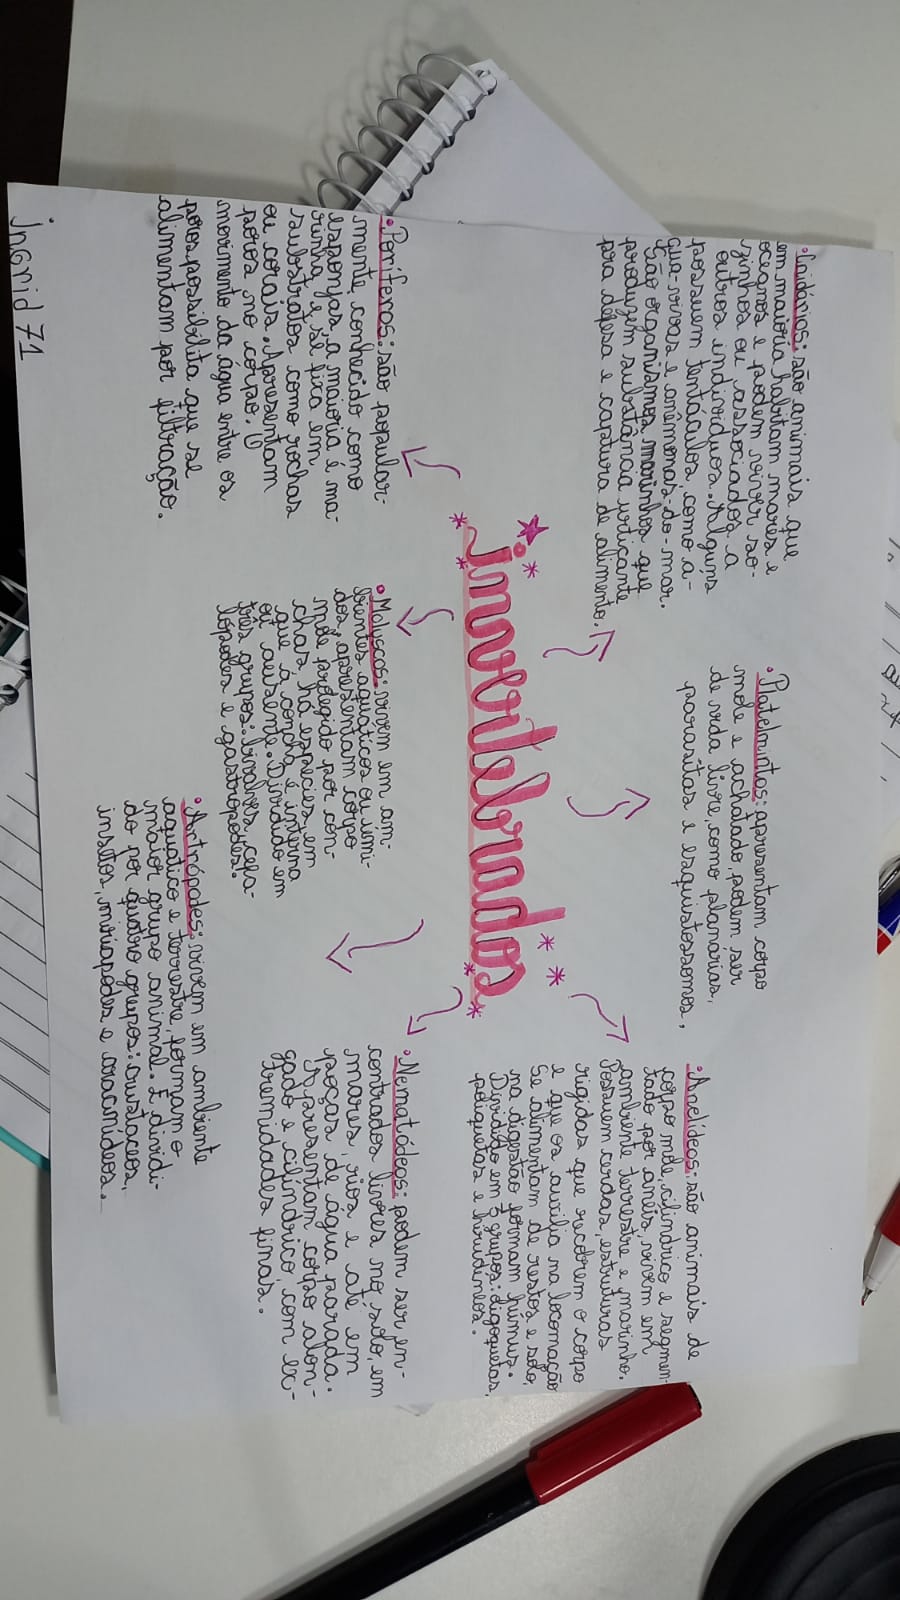 •Cnidários: são animais que
em maioria habitam mares e
oceanos e podem viver so-
zinhos ou associados a
outros indivíduos. Alguns
possuem tentáculos, como á-
gua-vivas e anêmonas-do-mar.
São organismos marinhos que
produzem substância urticante
pra defesa e captura de alimento.
•Platelmintos: apresentam corpo
mole e achatado, podem ser
de vida livre, como planárias,
parasitas e esquistossomos.
•Anelídeos: são animais de
corpo mole, cilíndrico e segmen-
tado por anéis, vivem em
ambiente terrestre e marinho.
Possuem cerdas, estruturas
rigidas que recobrem o corpo
e que os auxilia na locomoção
Se alimentam de restos e solo,
na digestão formam húmus.
Dividido em 3 grupos: oligoquetas,
poliquetas e hirudíneos.
invertebrados
•Poríferos: são popular-
mente conhecido como
esponjas, a maioria é ma-
rinha e se fixa em
substratos como rochas
ou corais. Apresentam
poros no corpo. O
movimento da água entre os
poros possibilita que se
alimentam por filtração.
•Moluscos: vivem em am-
bientes aquáticos ou úmi-
dos, apresentam corpo
mole protegido por con-
chas há espécies em
que a concha é interna
ou ausente. Dividido em
três grupos: bivalves, cefa-
lópodes e gastrópodes.
•Nematódeos: podem ser en-
contrados livres no solo, em
mares, rios e até em
poças de água parada.
Apresentam corpo alon-
gado e cilíndrico, com ex-
tremidades finas.
•Artrópodes: vivem em ambiente
aquático e terrestre, formam o
maior grupo animal. É dividi-
do por quatro grupos: crustaceos,
insetos, miriapodes e aracnídeos.
Ingrid 71